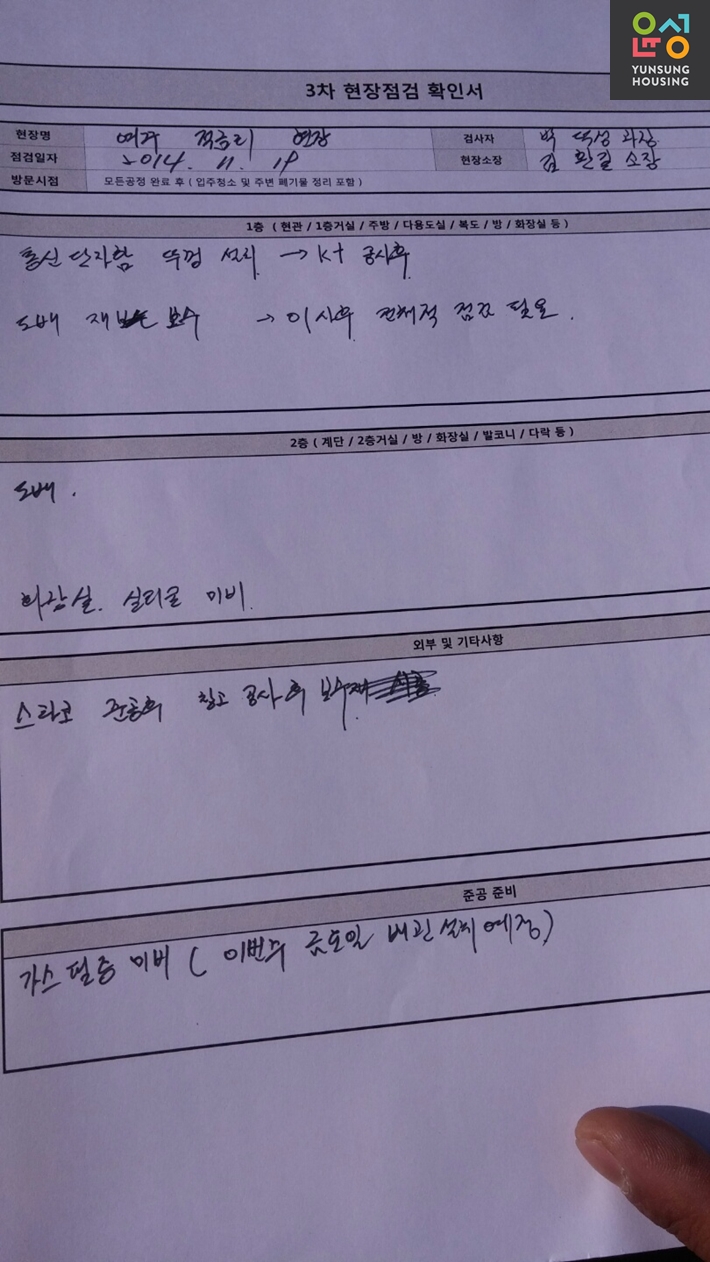 윤성
YUNSUNG
HOUSING
3차 현장점검 확인서
현장명 여주 적금리 현장 검사자 박 과장
점검일자 2014. 11. 19 현장소장 김 환길 소장
방문시점 모든공정 완료 후 ( 입주청소 및 주변 폐기물 정리 포함 )
1층 ( 현관 / 1층거실 / 주방 / 다용도실 / 복도 / 방 / 화장실 등 )
통신 단자함 뚜껑 설치 → kt 공사후
도배 재 보수 → 이사후 전체적 점검 필요.
2층 ( 계단 / 2층거실 / 방 / 화장실 / 발코니 / 다락 등 )
도배.
화장실. 실리콘 미비.
외부 및 기타사항
스타코 준공후 창고 공사 후 보수
준공 준비
가스 필증 미비 ( 이번주 금토일 배관 설치 예정)